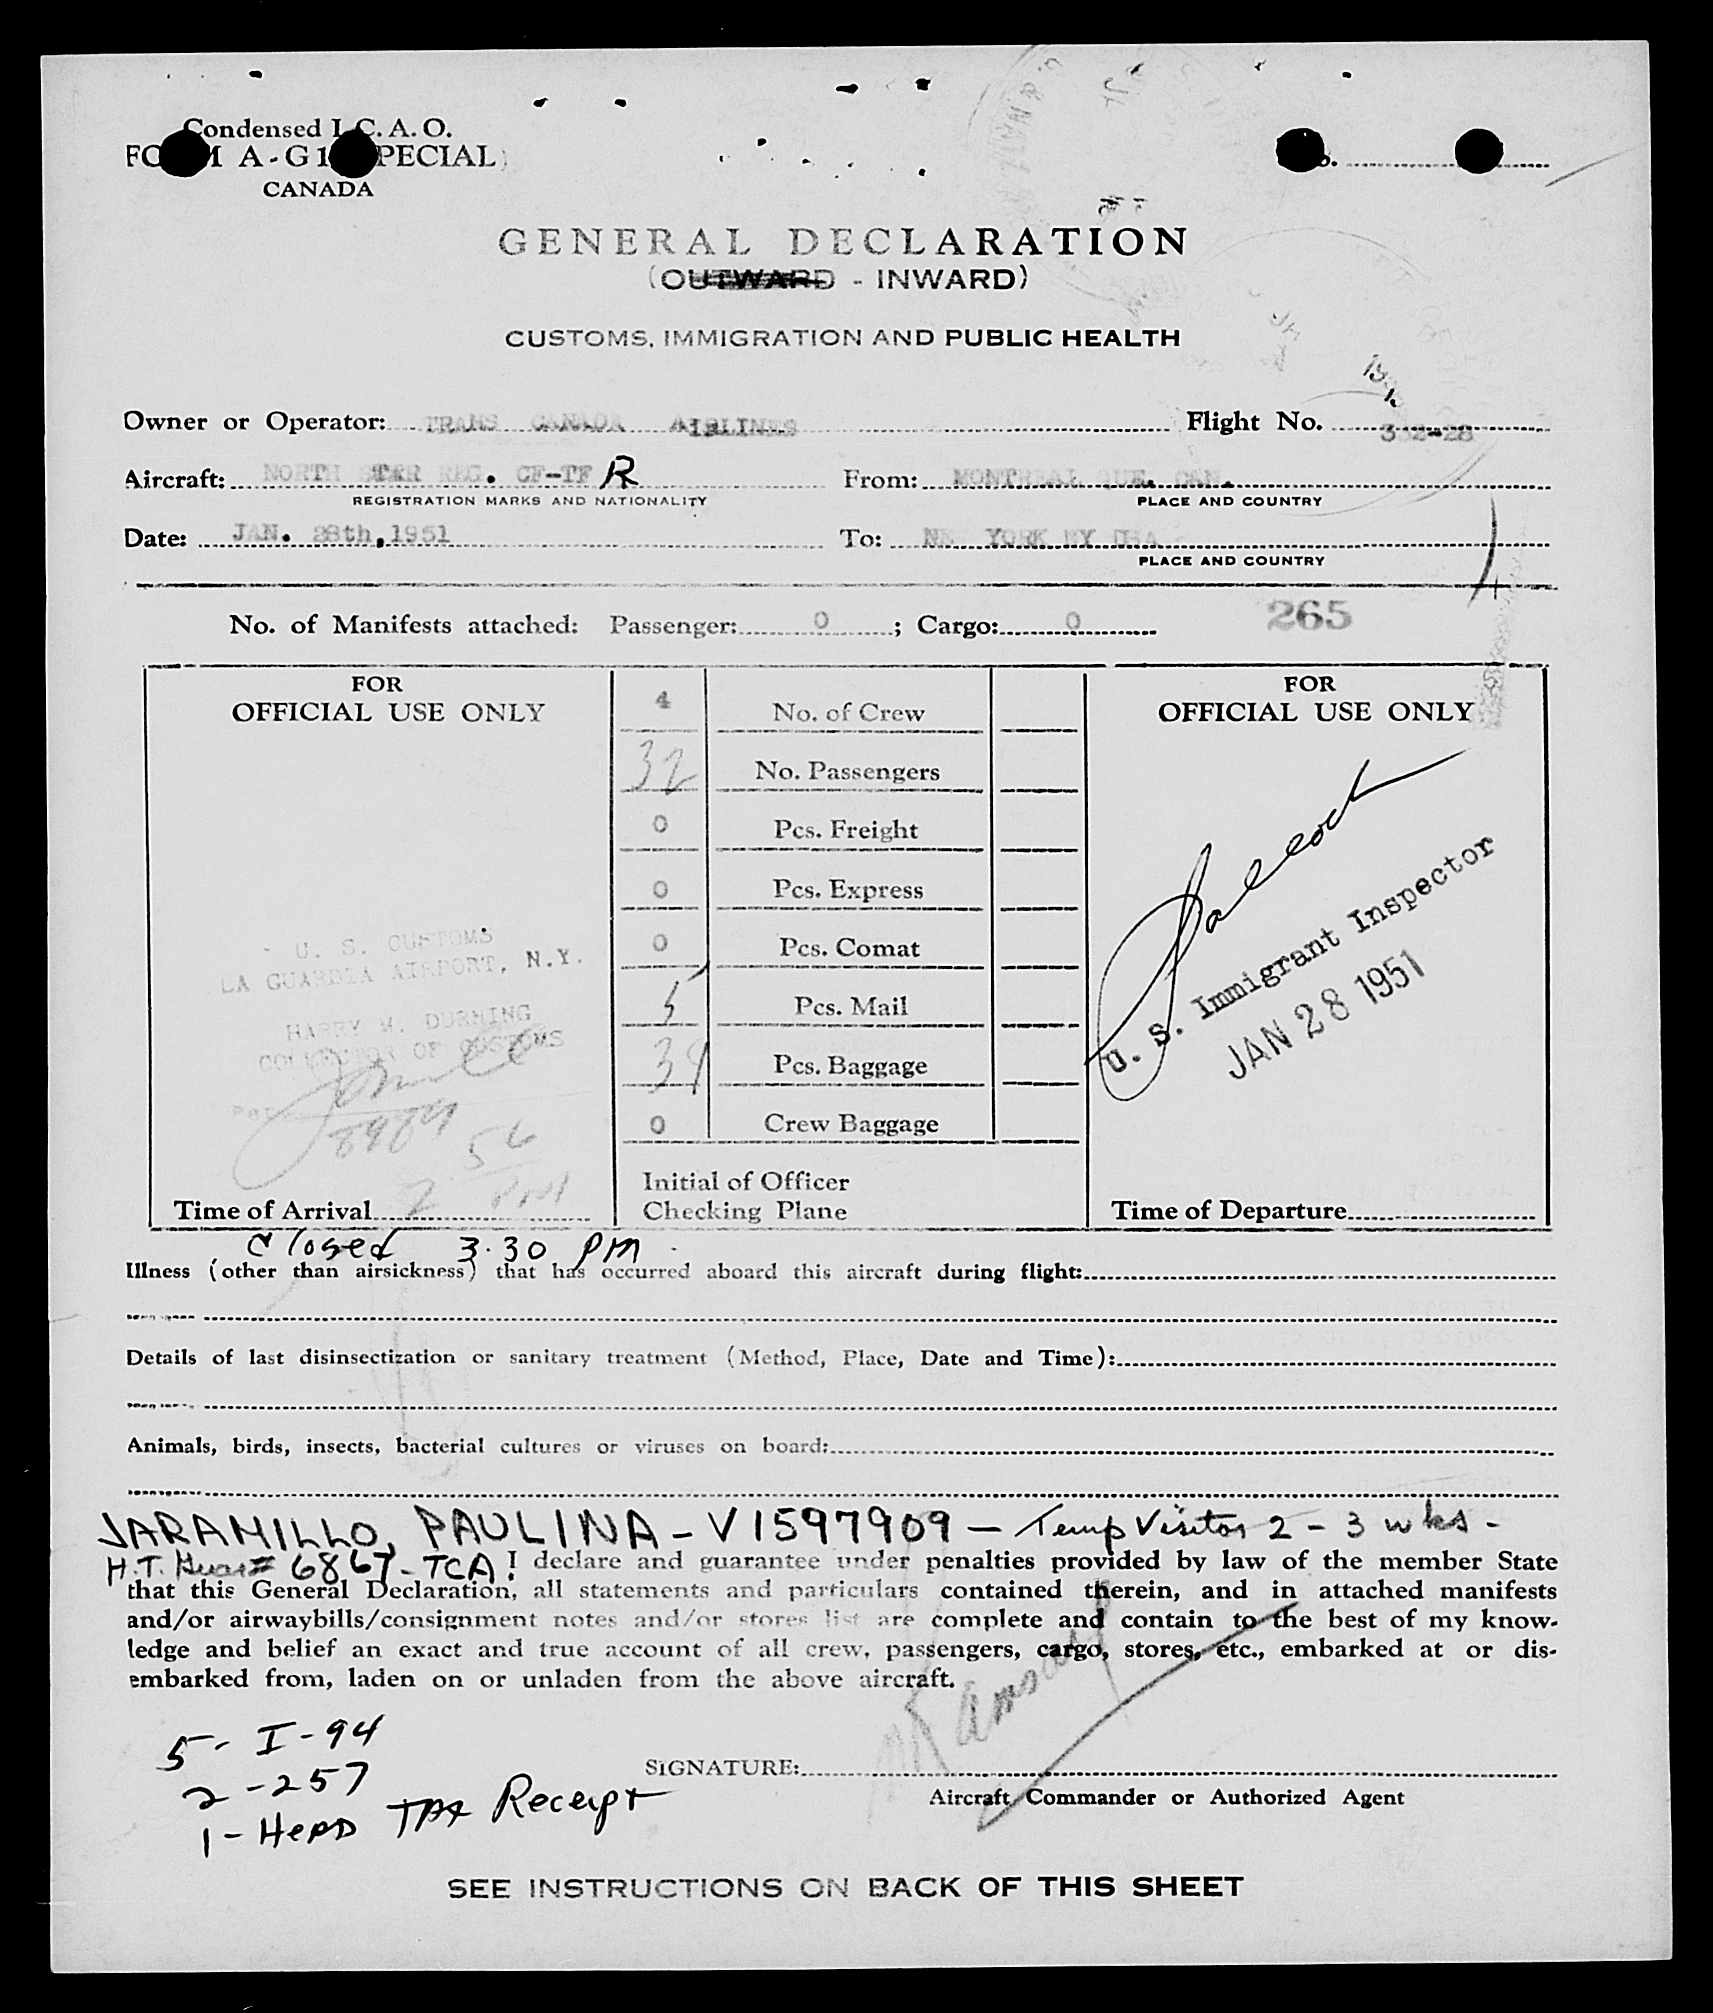 Condensed I.C.A.O.
A-G1
CANADA
GENERAL DECLARATION
(OUTWARD - INWARD)
CUSTOMS, IMMIGRATION AND PUBLIC HEALTH
Owner or Operator: TRANS CANADA AIRLINES Flight No. 332-28
Aircraft: NORTH STAR REG. CF-TF R From: MONTREAL QUE. CAN.
REGISTRATION MARKS AND NATIONALITY PLACE AND COUNTRY
Date: JAN. 28th, 1951 To: YORK NY USA
PLACE AND COUNTRY
No. of Manifests attached: Passenger: 0 ; Cargo: 0 265
FOR
OFFICIAL USE ONLY
U. S. CUSTOMS
LA GUARDIA AIRPORT, N.Y.
HARRY M. DURNING
COLLECTOR OF CUSTOMS
Per
8989
2 56 PM
Time of Arrival
4 No. of Crew
32 No. Passengers
0 Pcs. Freight
0 Pcs. Express
0 Pcs. Comat
5 Pcs. Mail
34 Pcs. Baggage
0 Crew Baggage
Initial of Officer
Checking Plane
FOR
OFFICIAL USE ONLY
U. S. Immigrant Inspector
JAN 28 1951
Time of Departure
Closed 3.30 PM
Illness (other than airsickness) that has occurred aboard this aircraft during flight:
Details of last disinsectization or sanitary treatment (Method, Place, Date and Time):
Animals, birds, insects, bacterial cultures or viruses on board:
JARAMILLO, PAULINA - V1597909 - Temp Visitor 2 - 3 wks -
H.T. 6867-TCA I declare and guarantee under penalties provided by law of the member State
that this General Declaration, all statements and particulars contained therein, and in attached manifests
and/or airwaybills/consignment notes and/or stores list are complete and contain to the best of my know-
ledge and belief an exact and true account of all crew, passengers, cargo, stores, etc., embarked at or dis-
embarked from, laden on or unladen from the above aircraft.
5 - I-94
2 - 257
1 - Head Tax Receipt
SIGNATURE:
Aircraft Commander or Authorized Agent
SEE INSTRUCTIONS ON BACK OF THIS SHEET